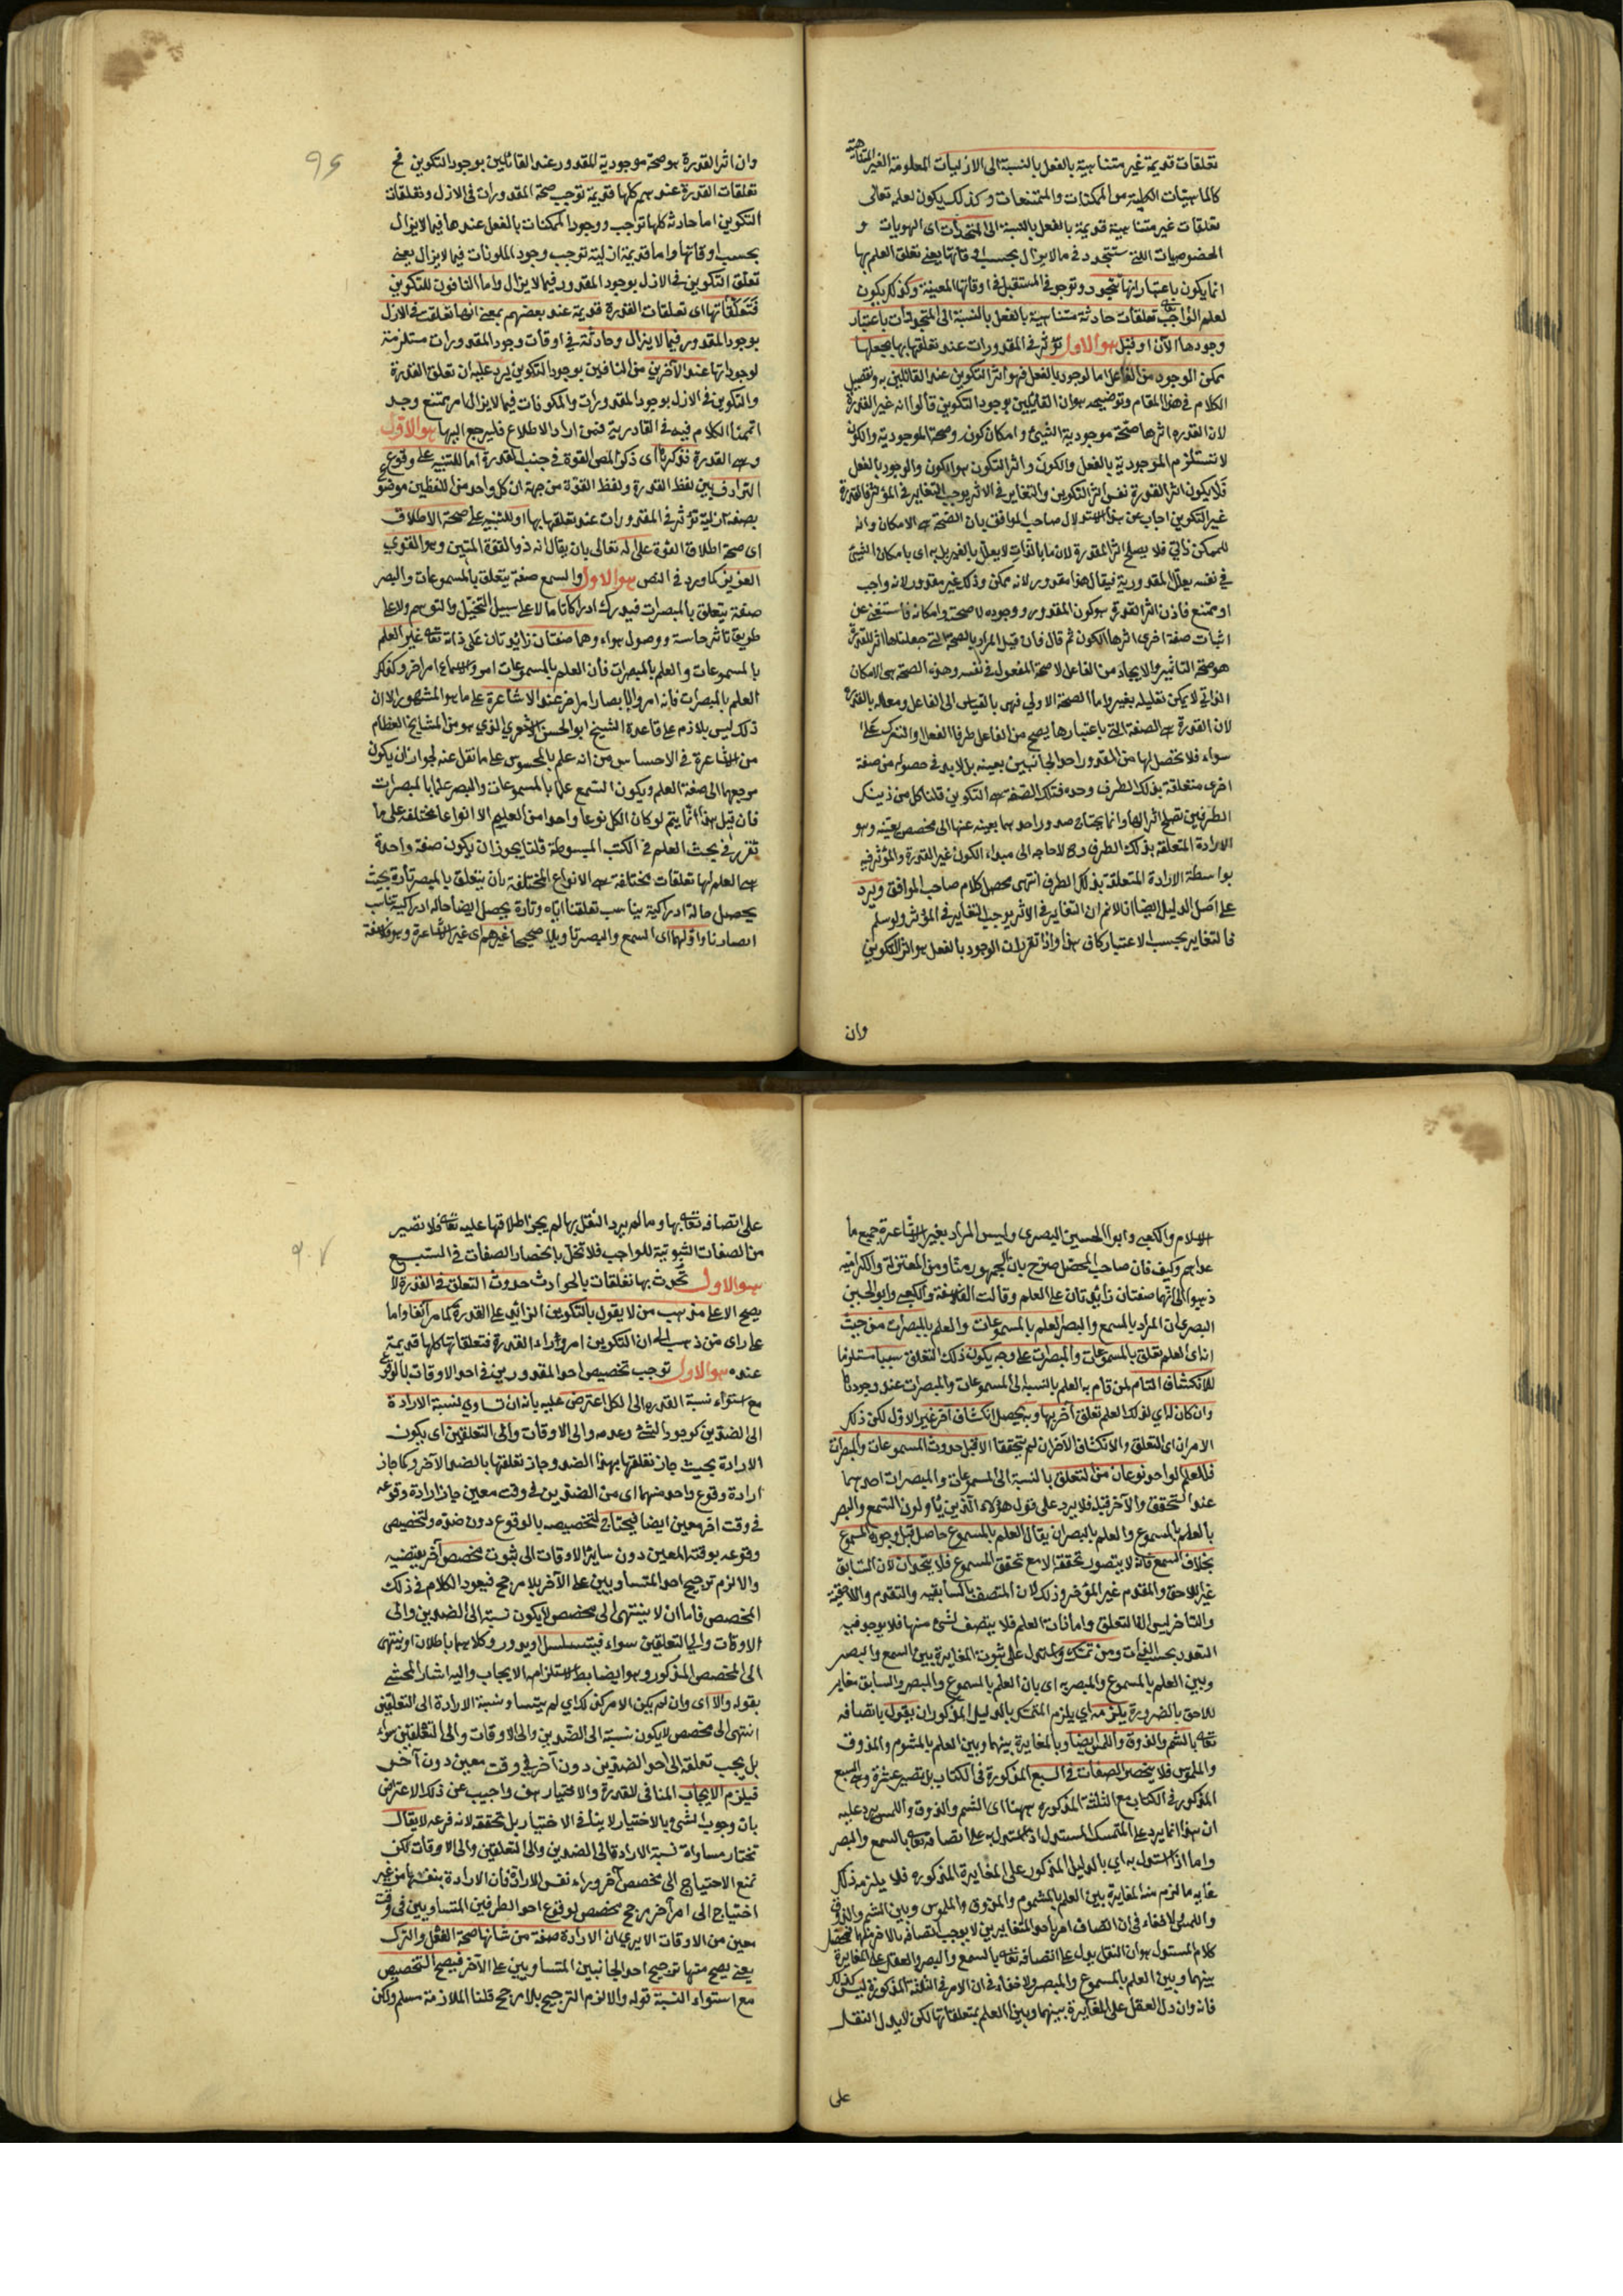 تعلقات قديمة غير متناهية بالفعل بالنسبة الى الازليات المعلومة الغير المتناهية
كالماهيات الكلية من الممكنات والممتنعات وكذلك يكون لعلمه تعالى
تعلقات غير متناهية قديمة بالفعل بالنسبة الى المتجددات اى الهويات و
الخصوصيات اللتى ستتجدد فى ما لا يزال بحسب اوقاتها يعنى تعلق العلم بها
انما يكون باعتبار انها تتجدد وتوجد فى المستقبل فى اوقاتها المعينة وكذلك يكون
لعلم الواجب تعه تعلقات حادثة متناهية بالفعل بالنسبة الى المتجددات باعتبار
وجودها الآن او قبل هو الاول تؤثر فى المقدورات عند تعلقها بها يجعلها
ممكن الوجود من الفاعل اما الوجود بالفعل فهو اثر التكوين عند القائلين به وتفصيل
الكلام فى هذا المقام وتوضيحه هو ان القائلين بوجود التكوين قالوا انه غير القدرة
لان القدره اثرها صحة موجودية الشيئ وامكان كون وصحة الموجودية والكون
لا تستلزم الموجودية بالفعل والكون واثر التكون هو الكون والوجود بالفعل
فلا يكون اثر القدرة نفس اثر التكوين والتغاير فى الاثر يوجب التغاير فى المؤثر فالقدرة
غير التكوين اجاب عن هذا الاستدلال صاحب المواقف بان الصحة هى الامكان وانه
للممكن ذاتى فلا يصلح اثرا للقدرة لان ما بالذات لا يعلل بالغير بل به اى بامكان الشيئ
فى نفسه يعلل المقدورية فيقال هذا مقدور لانه ممكن وذلك غير مقدور لانه واجب
او ممتنع فاذن اثر القدرة هو كون المقدور ووجوده لا صحته وامكانه فاستغنى عن
اثبات صفة اخرى اثرها الكون ثم قال فان قيل المراد بالصحة التى جعلناها اثر للقدرة
هو صحة التاثير والايجاد من الفاعل لا صحة المفعول فى نفسه وهذه الصحة هى الامكان
الذاتى لا يمكن تعليله بغيره واما الصحة الاولى فهى بالقياس الى الفاعل ومعلله بالقدرة
لان القدرة هى الصفة التى باعتبارها يصح من الفاعل طرفا الفعل والترك على
سواء فلا تخصل لها من المقدور احد الجانبين بعينه بل لا بد فى حصوله من صفة
اخرى متعلقة بذلك الطرف وحده فتلك الصفة هى التكوين قلنا كل من ذينك
الطرفين تصلح اثر الها وانما يحتاج صدور احدهما بعينه عنها الى مخصص يعينه وهو
الارادة المتعلقة بذلك الطرف وح لا حاجه الى مبداء الكون غير القدرة والمؤثر فيه
بواسطة الارادة المتعلقة بذلك الطرف انتهى محصل كلام صاحب المواقف ويرد
على اصل الدليل ايضا انا لانم ان التغاير فى الاثر يوجب التغاير فى المؤثر ولو سلم
فالتغاير بحسب الاعتبار كاف هذا واذا تقرر ان الوجود بالفعل هو اثر التكوين
وان
وان اثر القدرة هو صحة موجودية المقدور عند القائلين بوجود التكوين فح
تعلقات القدرة عندهم كلها قديمة توجب صحة المقدورات فى الازل وتعلقات
التكوين اما حادثة كلها توجب ووجود الممكنات بالفعل عندها فيما لا يزال
بحسب اوقاتها واما قديمة ازلية توجب وجود المكونات فيما لا يزال بمعنى
تعلق التكوين فى الازل بوجود المقدور فيما لا يزال واما النافون للتكوين
فتعلقاتها اى تعلقات القدرة قديمة عند بعضهم بمعنى انها تعلقت فى الازل
بوجود المقدور فيما لا يزال وحادثة فى اوقات وجود المقدورات مستلزمة
لوجوداتها عند الآخرين من النافين بوجود التكوين يرد عليه ان تعلق القدرة
والتكوين فى الازل بوجود المقدورات والمكونات فيما لا يزال امر ممتنع وجد
اتممنا الكلام فيه فى القادرية فمن اراد الاطلاع فليرجع اليها هو الاول
وهى القدرة فذكرها اى ذكر المص القوة فى جنب القدرة اما للتنبيه على وقوع
الترادف بين لفظ القدرة ولفظ القوة من جهة ان كل واحد من اللفظين موضوع
بصفة ازلية تؤثر فى المقدورات عند تعلقها بها او للتنبيه على صحة الاطلاق
اى صحة اطلاق القوة على اله تعالى بان يقال انه ذو القوة المتين وهو القوى
العزيز كما ورد فى النص هو الاول والسمع صفة يتعلق بالمسموعات والبصر
صفة يتعلق بالمبصرات فيدرك ادراكا تاما لا على سبيل التخيل والتوهم ولا على
طريق تاثر حاسة ووصول هواء وهما صفتان زائدتان على ذاته تعه غير العلم
بالمسموعات والعلم بالمبصرات فأن العلم بالمسموعات امر والسماع امر اخر وكذلك
العلم بالمبصرات فانه امر والابصار امر اخر عند الاشاعرة على ما هو المشهور الا ان
ذلك ليس بلازم على قاعدة الشيخ ابو الحسن الاشعرى الذى هو من المشايخ العظام
من الاشاعرة فى الاحساس من انه علم بالمحسوس على ما نقل عنه لجواز ان يكون
مرجعهما الى صفة العلم ويكون السمع علما بالمسموعات والبصر علما بالمبصرات
فأن قيل هذا انما يتم لو كان الكل نوعا واحدا من العليم الا انواعا مختلفة على ما
تقرر فى بحث العلم فى الكتب المبسوطة قلنا يجوز ان يكون صفة واحدة
هى العلم لها تعلقات مختلفة هى الانواع المختلفة بان يتعلق بالمبصر تارة بحيث
يحصل حالة ادراكية يناسب تعلقنا اياه وتارة يحصل ايضا حالة ادراكية تناسب
ابصارنا واولهما اى السمع والبصر تاويلا صحيحا غيرهم اى غير الاشاعرة وهو فلاسفة
الاسلام والكعبى وابو الحسين البصرى وليس المراد بغير الاشاعرة جميع ما
عداهم وكيف فان صاحب المحصل صرح بان الجمهور منا ومن المعتزلة والكراميه
ذهبوا الى انهما صفتان زائدتان على العلم وقالت الفلاسفة والكعبى وابو الحسين
البصرى ان المراد بالسمع والبصر العلم بالمسموعات والعلم بالمبصرات من حيث
انه اى العلم تعلق بالمسموعات والمبصرات على وجه يكون ذلك التعلق سببا مستلزما
للانكشاف التام لمن قام به العلم بالنسبة الى المسموعات والمبصرات عند وجودها
وان كان له اى لذلك العلم تعلق آخر بها وبه يحصل انكشاف آخر غير الاول لكن ذلك
الامران اى التعلق والانكشاف الآخران لم يتحققا الا قبل حدوث المسموعات والمبصرات
فللعلم الواحد نوعان من التعلق بالنسبة الى المسموعات والمبصرات احدهما
عند التحقق والآخر قبله فلا يرد على قوله هؤلاء الذين يأولون السمع والبصر
بالعلم بالمسموع والعلم بالبصر ان يقال العلم بالمسموع حاصل قبل وجود المسموع
بخلاف السمع فانه لا يتصور تحققه الا مع تحقق المسموع فلا يتحدان لان السابق
غير اللاحق والمقدم غير المؤخر وذلك لان المتصف بالسابقيه والتقدم واللاحقية
والتاخر ليس الا التعلق واما ذات العلم فلا يتصف لشئ منها فلا يوجد فيه
التعدد بحسب الذات ومن تمسك واستدل على ثبوت المغايرة بين السمع والبصر
وبين العلم بالمسموع والمبصر به اى بان العلم بالمسموع والمبصر والسابق مغاير
للاحق بالضرورة يلزمه اى يلزم المتمسك بالدليل المذكور ان يقول باتصافه
تعه بالشم والذوق واللمس ايضا وبالمغايرة بينها وبين العلم بالمشموم والمذوق
والملموس فلا ينحصر الصفات فى السبع المذكورة فى الكتاب بل تصير عشرة وهى السبع
المذكور فى الكتاب مع الثلثة المذكوره ههنا اى الشم والذوق واللمس يرد عليه
ان هذا انما يرد على المتمسك المستدل اذ استدل به على اتصافه تعه بالسمع والبصر
واما اذا استدل به اى بالدليل المذكور على المغايرة المذكوره فلا يلزمه ذلك
غايه ما لزم منه المغايرة بين العلم بالمشموم والمذوق والملموس وبين الشم والذوق
واللمس لا خفاء فى ان اتصاف امر باحد المتغايرين لا يوجب اتصافه بالآخر منهما فمحصل
كلام المستدل هو ان النقل يدل على اتصافه تعه بالسمع والبصر والعقل على المغايرة
بينهما وبين العلم بالمسموع والمبصر ولا خفاء فى ان الامر فى الثلثة المذكورة ليس كذلك
فانه وان دل العقل على المغايرة بينهما وبين العلم بمتعلقاتها لكن لا يدل النقل
على
على اتصافه تعه بها وما لم يرد النقل بها لم يجز اطلاقها عليه تعه فلا تصير
من الصفات الثبوتية للواجب فلا تخل بانحصار الصفات فى السبع
هو الاول تحدث بها تعلقات بالحوادث حدوث التعلق فى القدرة لا
يصح الا على مذهب من لا يقول بالتكوين الزائد على القدرة كما مر آنفا واما
على راى من ذهب الى ان التكوين امر وراء القدرة فتعلقاتها كلها قديمة
عنده هو الاول توجب تخصيص احد المقدورين فى احد الاوقات بالوقوع
مع استواء نسبة القدره الى الكل اعترض عليه بانه ان تساوى نسبة الارادة
الى الضدين كوجود الشئ وعدمه والى الاوقات والى التعلقين اى يكون
الارادة بحيث جاز تعلقها بهذا الضد وجاز تعلقها بالضد الآخر وكما جاز
ارادة وقوع واحد منهما اى من الضدين فى وقت معين جاز ارادة وقوعه
فى وقت اخر معين ايضا فيحتاج لتخصيصه بالوقوع دون ضده ولتخصيص
وقوعه بوقته المعين دون سائر الاوقات الى ثبوت مخصص آخر يقتضيه
والا لزم ترجيح احد المتساويين على الآخر بلا مرجح فيعود الكلام فى ذلك
المخصص فاما ان لا ينتهى الى مخصص لا يكون نسبته الى الضدين والى
الاوقات والى التعلقين سواء فيتسلسل او يدور وكلاهما باطلان او ينتهى
الى المخصص المذكور وهو ايضا بط لاستلزامه الايجاب واليه اشار المحشى
بقوله والا اى وان لم يكن الامر كذلك اى لم يتساو نسبة الارادة الى التعلقين
انتهى الى مخصص لا يكون نسبة الى الضدين والى الاوقات والى التعلقين سواء
بل يجب تعلقه الى احد الضدين دون آخر فى وقت معين دون آخر
فيلزم الايجاب المنافى للقدرة والاختيار هف واجيب عن ذلك الاعتراض
بان وجوب الشئ بالاختيار لا ينافى الاختيار بل تحققه لانه فرعه لا يقال
تختار مساواة نسبة الارادة الى الضدين والى التعلقين والى الاوقات لكن
نمنع الاحتياج الى مخصص آخر وراء نفس الارادة فان الارادة بنفسها من غير
احتياج الى امر آخر مرجح مخصص لوقوع احد الطرفين المتساويين فى وقت
معين من الاوقات الا يرى ان الارادة صفة من شانها صحة الفعل والترك
يعنى يصح منها ترجيح احد الجانبين المتساويين على الآخر فيصح التخصيص
مع استواء النسبة قوله والا لزم الترجيح بلا مرجح قلنا الملازمة مسلم ولكن